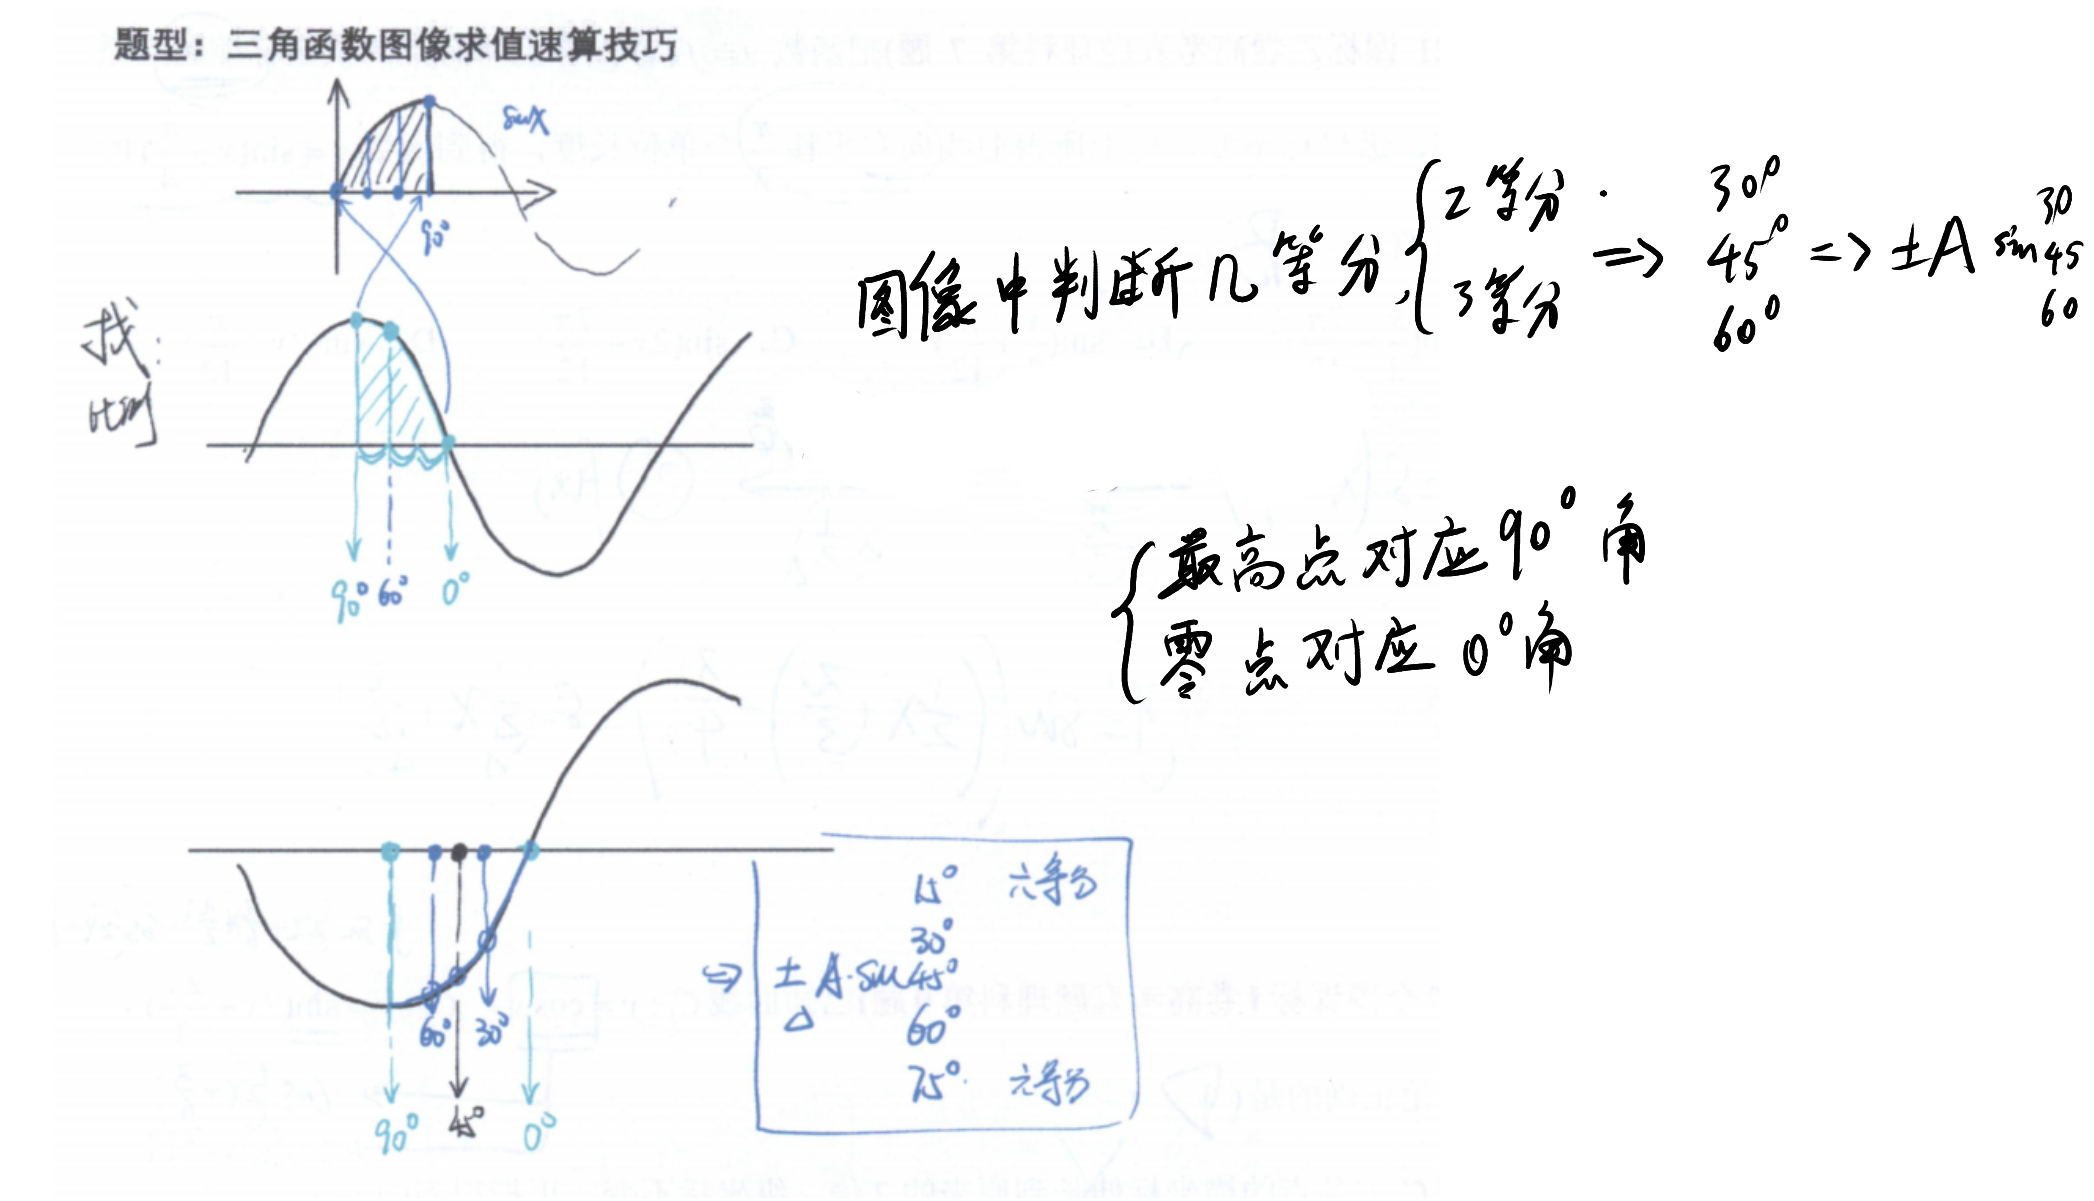 题型：三角函数图像求值速算技巧
sinx
90°
找：
比例
90° 60° 0°
图像中判断几等分，
2等分
3等分
=> 30° 45° 60° => ±A sin 30 45 60
最高点对应90°角
零点对应0°角
60° 30°
90° 45° 0°
15° 六等分
30°
=> ±A·sin45°
60°
75°. 六等分